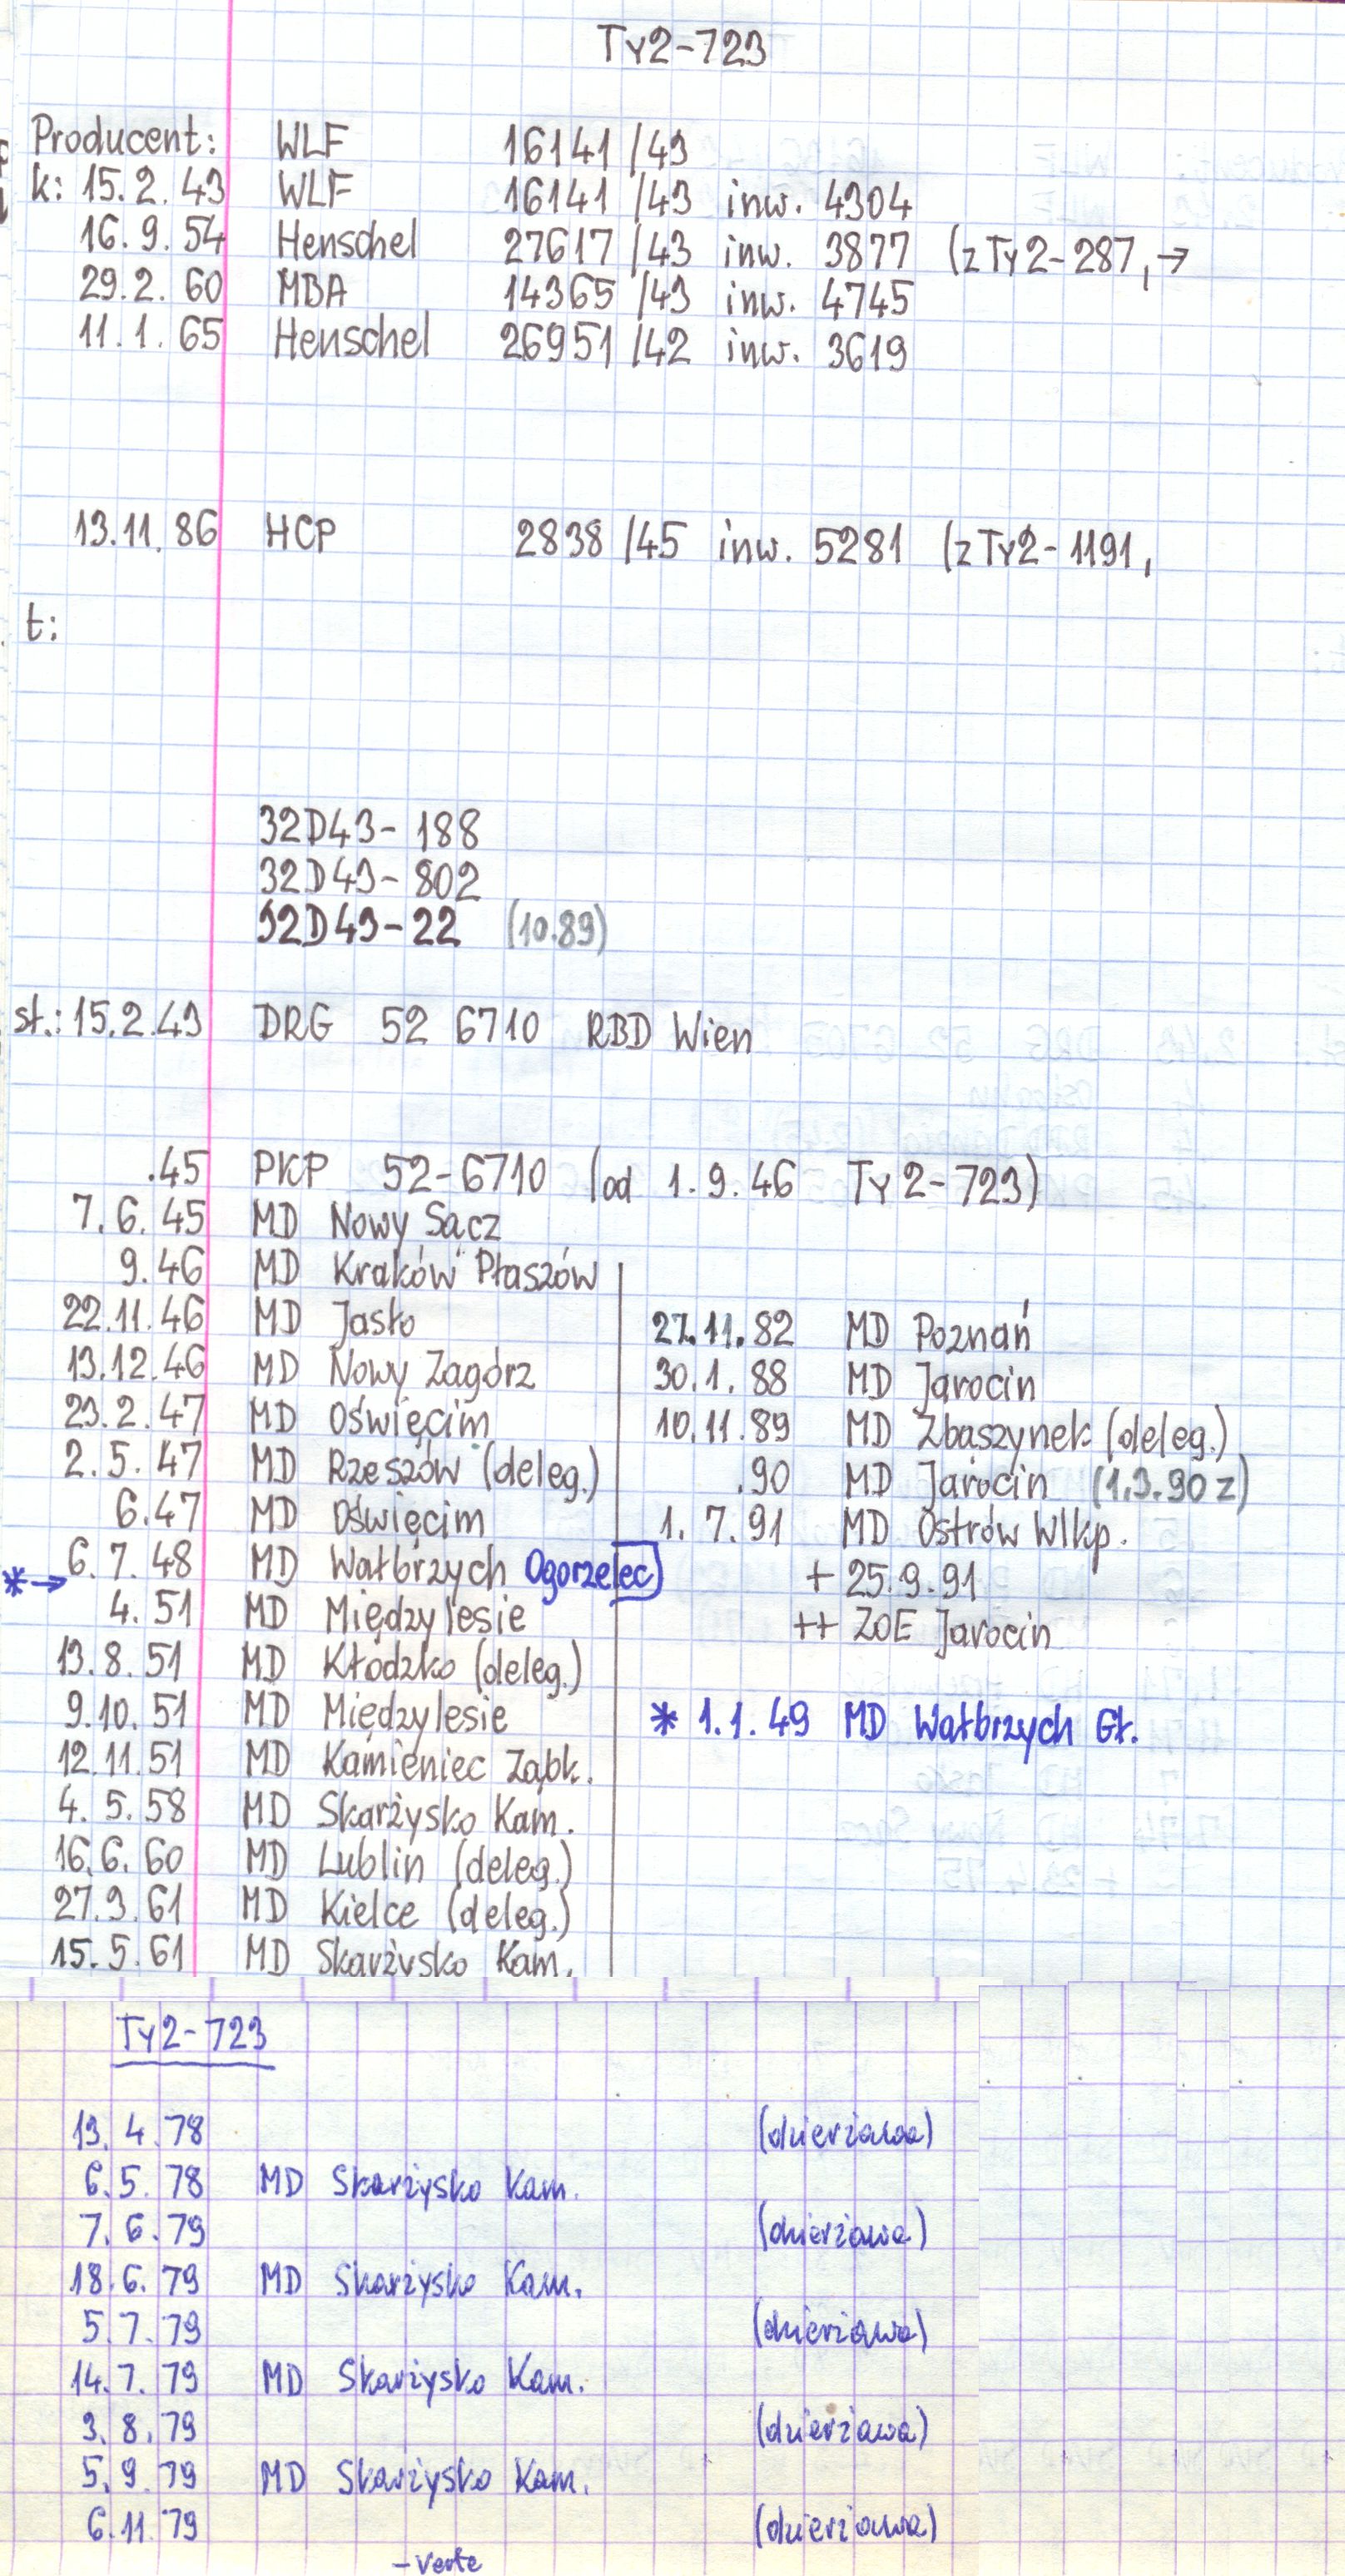 Ty2-723
Producent: WLF 16141/43
k: 15.2.43 WLF 16141/43 inw. 4304
16.9.54 Henschel 27617/43 inw. 3877 (z Ty2-287, →
29.2.60 MBA 14365/43 inw. 4745
11.1.65 Henschel 26951/42 inw. 3619
13.11.86 HCP 2838/45 inw. 5281 (z Ty2-1191,
t:
32D43-188
32D43-802
32D43-22 (10.89)
st.: 15.2.43 DRG 52 6710 RBD Wien
.45 PKP 52-6710 (od 1.9.46 Ty2-723)
7.6.45 MD Nowy Sącz
9.46 MD Kraków Płaszów
22.11.46 MD Jasło
13.12.46 MD Nowy Zagórz
23.2.47 MD Oświęcim
2.5.47 MD Rzeszów (deleg.)
6.47 MD Oświęcim
*→ 6.7.48 MD Wałbrzych Ogorzelec
4.51 MD Międzylesie
13.8.51 MD Kłodzko (deleg.)
9.10.51 MD Międzylesie
12.11.51 MD Kamieniec Ząbk.
4.5.58 MD Skarżysko Kam.
16.6.60 MD Lublin (deleg.)
27.3.61 MD Kielce (deleg.)
15.5.61 MD Skarżysko Kam.
27.11.82 MD Poznań
30.1.88 MD Jarocin
10.11.89 MD Zbąszynek (deleg.)
.90 MD Jarocin (1.3.90 z)
1.7.91 MD Ostrów Wlkp.
+ 25.9.91
++ ZOE Jarocin
* 1.1.49 MD Wałbrzych Gł.
Ty2-723
13.4.78 (dzierżawa)
6.5.78 MD Skarżysko Kam.
7.6.79 (dzierżawa)
18.6.79 MD Skarżysko Kam.
5.7.79 (dzierżawa)
14.7.79 MD Skarżysko Kam.
3.8.79 (dzierżawa)
5.9.79 MD Skarżysko Kam.
6.11.79 (dzierżawa)
-verte